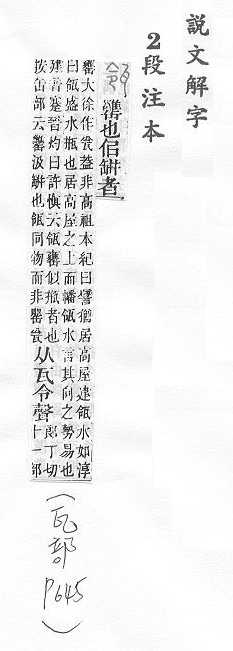 說文解字
2段注本
瓴
罋也佀缾者
罋大徐作瓮葢非高祖本紀曰譬猶居高屋建瓴水如淳
曰瓴盛水瓶也居高屋之上而幡瓴水言其向之勢易也
建音蹇晉灼曰許愼云瓴罋似瓶者也
按缶部云罋汲缾也瓴同物而非罌瓮
从瓦令聲
郎丁切
十一部
(瓦部
P645)